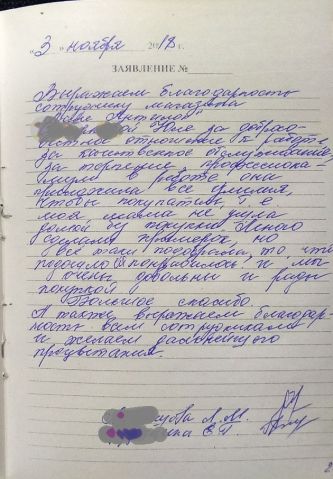 "3" ноября 2018 г.
ЗАЯВЛЕНИЕ №
Выражаем благодарность
сотруднику магазина
Юле за добросо-
вестное отношение к работе
за качественное обслуживание
за терпение,
в работе они
приложили все усилия,
чтобы покупатель, т. е.
моя мама не ушла
домой без покупки. Много
сделали примерок, но
всё таки подобрали, то что
подошло и понравилось и мы
очень довольны и рады
покупкой
Большое спасибо.
А также выражаем благодар-
ность всем сотрудникам
и желаем дальнейшего
процветания.
Л. М.
Е. Г.